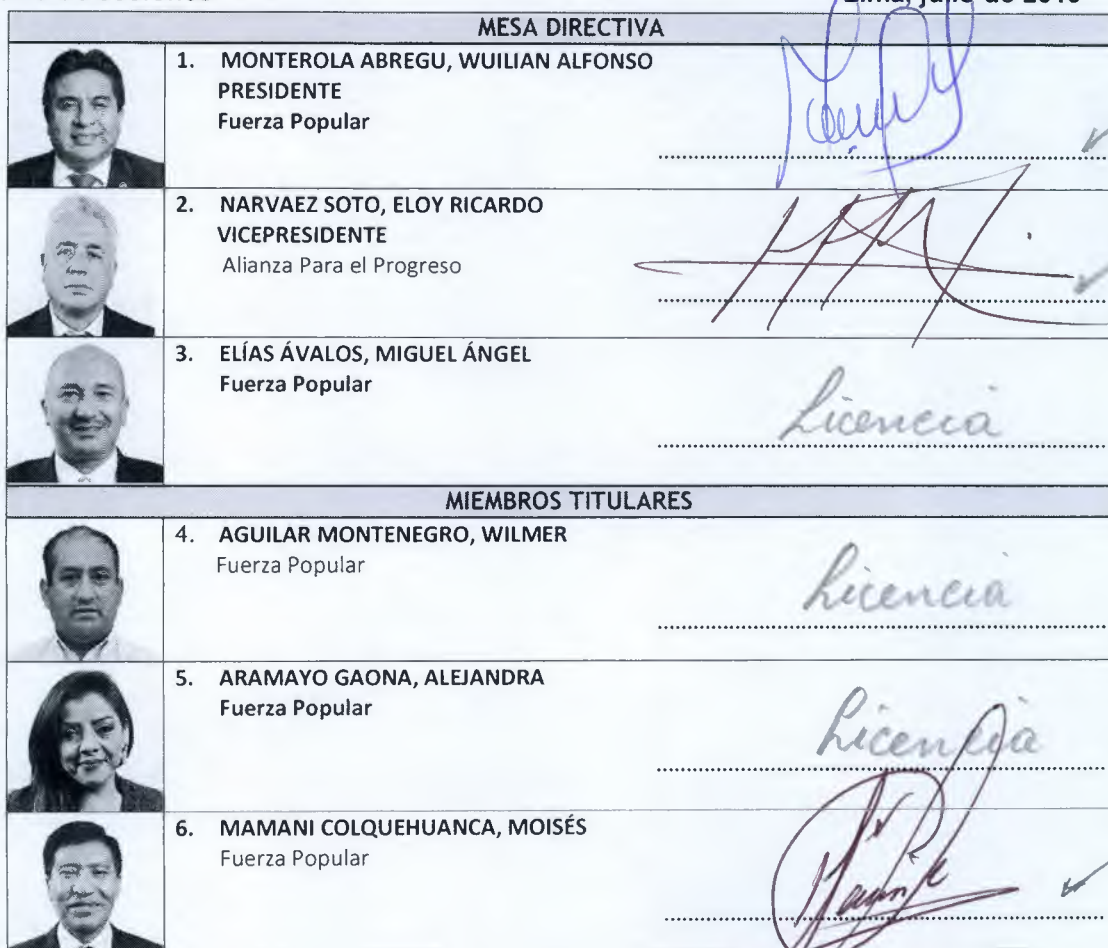 MESA DIRECTIVA
1. MONTEROLA ABREGU, WUILIAN ALFONSO
PRESIDENTE
Fuerza Popular
2. NARVAEZ SOTO, ELOY RICARDO
VICEPRESIDENTE
Alianza Para el Progreso
3. ELÍAS ÁVALOS, MIGUEL ÁNGEL
Fuerza Popular
Licencia
MIEMBROS TITULARES
4. AGUILAR MONTENEGRO, WILMER
Fuerza Popular
Licencia
5. ARAMAYO GAONA, ALEJANDRA
Fuerza Popular
Licencia
6. MAMANI COLQUEHUANCA, MOISÉS
Fuerza Popular